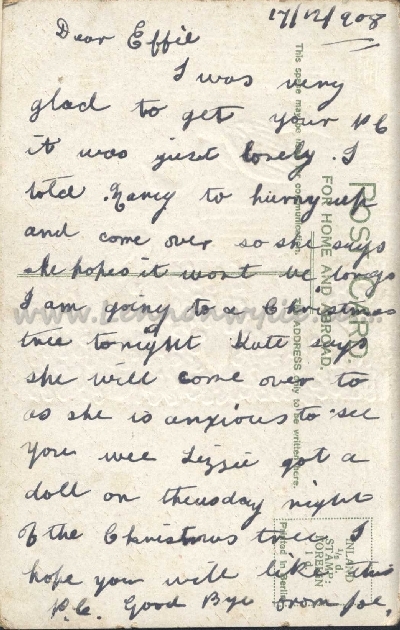 17/12/908
Dear Effie
I was very
glad to get your P.C
it was just lovely. I
told Nancy to hurry up
and come over so she says
she hopes it wont be long
I am going to a Christmas
tree tonight Kate says
she will come over to
as she is anxious to see
you wee Lizzie got a
doll on theusday night
of the Christmas tree I
hope you will like this
P.C. Good Bye from Joe.
POST CARD
FOR HOME AND ABROAD.
This space may be used for communication.
THE ADDRESS only to be written here.
INLAND
½ d.
STAMP.
FOREIGN
1 d.
Printed in Berlin